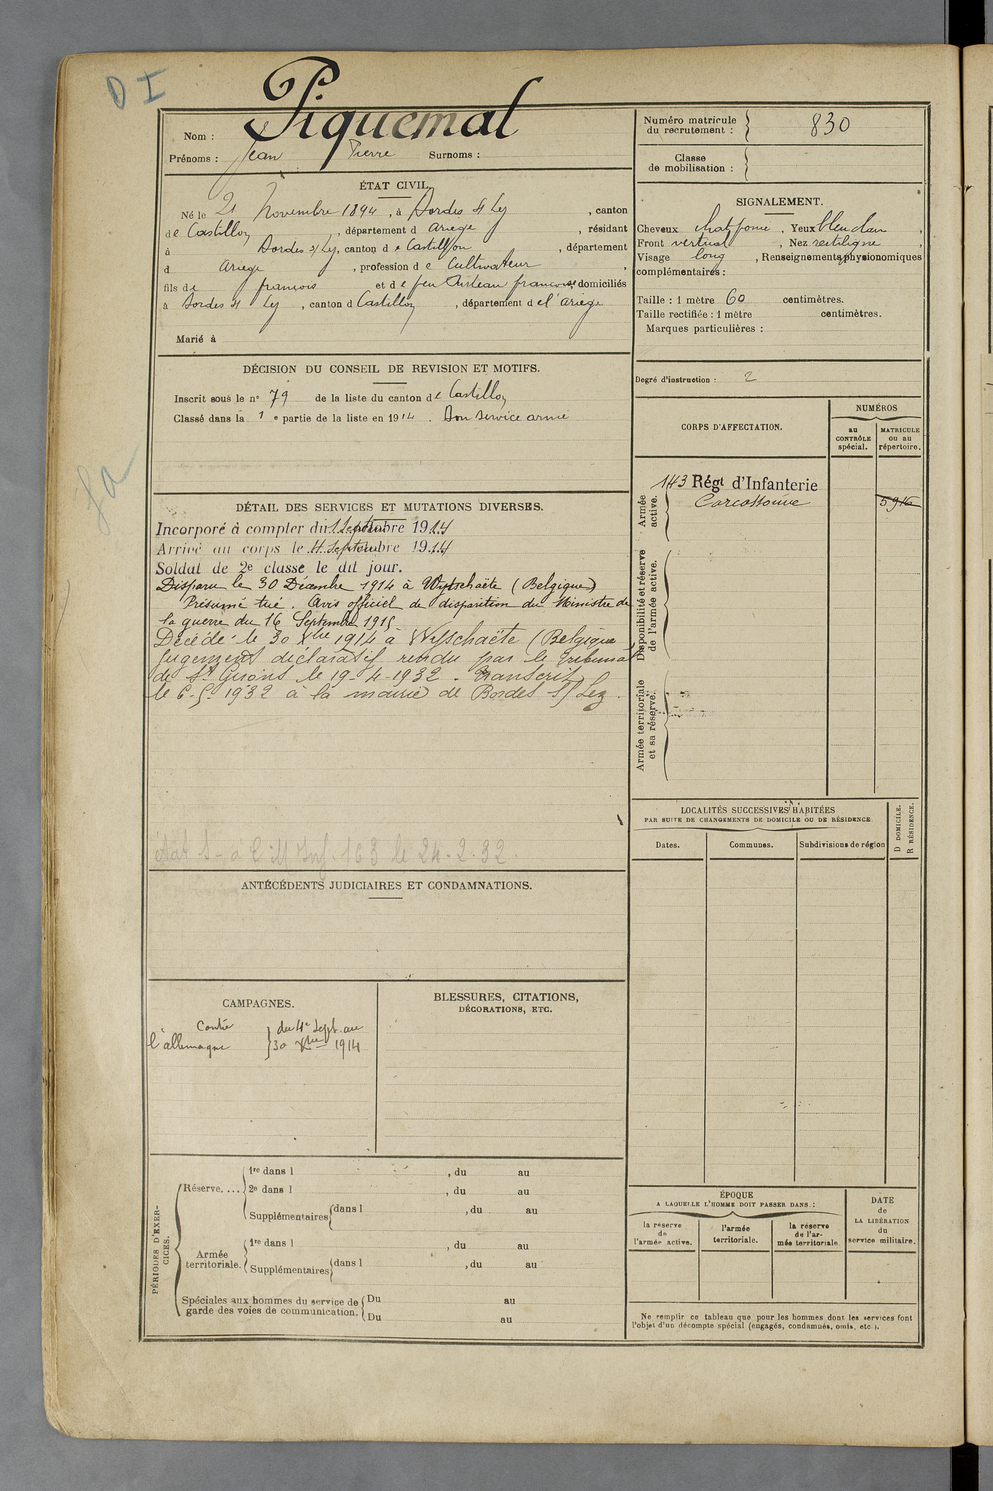 D I
Piquemal
Nom :
Prénoms : Jean Pierre Surnoms :
Numéro matricule
du recrutement : 830
Classe
de mobilisation :
ÉTAT CIVIL.
Né le 21 Novembre 1894, à Bordes s/ Lez, canton
de Castillon, département d Ariege, résidant
à Bordes s/ Lez, canton de Castillon, département
d Ariege, profession de Cultivateur
fils de françois et de feu françoise, domiciliés
à Bordes s/ Lez, canton d Castillon, département de l'Ariege
Marié à
SIGNALEMENT.
Cheveux chat foncé, Yeux bleu clair,
Front vertical, Nez rectiligne,
Visage long, Renseignements physionomiques
complémentaires :
Taille : 1 mètre 60 centimètres.
Taille rectifiée : 1 mètre centimètres.
Marques particulières :
Degré d'instruction : 2
DÉCISION DU CONSEIL DE REVISION ET MOTIFS.
Inscrit sous le n° 79 de la liste du canton de Castillon
Classé dans la 1e partie de la liste en 1914. Bon service armé
DÉTAIL DES SERVICES ET MUTATIONS DIVERSES.
Incorporé à compter du 1 Septembre 1914
Arrivé au corps le 4 Septembre 1914
Soldat de 2e classe le dit jour.
Disparu le 30 Décembre 1914 à Wytschaëte (Belgique)
Présumé tué. Avis officiel de disparition du Ministre de
la guerre du 16 Septembre 1915
Décédé le 30 Xbre 1914 à Wytschaëte (Belgique)
Jugement déclaratif rendu par le Tribunal
de St Girons le 19-4-1932. Transcrit
le 6-5-1932 à la mairie de Bordes s/ Lez.
163 le 24-2-32.
CORPS D'AFFECTATION.
NUMÉROS
au
CONTRÔLE
spécial.
MATRICULE
ou au
répertoire.
Armée
active.
143 Régt d'Infanterie
Carcassonne
Disponibilité et réserve
de l'armée active.
Armée territoriale
et sa réserve.
LOCALITÉS SUCCESSIVES HABITÉES
PAR SUITE DE CHANGEMENTS DE DOMICILE OU DE RÉSIDENCE.
D DOMICILE.
R RÉSIDENCE.
Dates.
Communes.
Subdivisions de région
ANTÉCÉDENTS JUDICIAIRES ET CONDAMNATIONS.
CAMPAGNES.
Contre
l'allemagne
du 4 Sept. au
30 Xbre 1914
BLESSURES, CITATIONS,
DÉCORATIONS, ETC.
PÉRIODES D'EXER-
CICES.
Réserve....
1re dans l , du au
2e dans l , du au
Supplémentaires dans l , du au
Armée
territoriale.
1re dans l , du au
Supplémentaires dans l , du au
Spéciales aux hommes du service de
garde des voies de communication.
Du au
Du au
ÉPOQUE
A LAQUELLE L'HOMME DOIT PASSER DANS :
la réserve
de
l'armée active.
l'armée
territoriale.
la réserve
de l'ar-
mée territoriale.
DATE
de
LA LIBÉRATION
du
service militaire.
Ne remplir ce tableau que pour les hommes dont les services font
l'objet d'un décompte spécial (engagés, condamnés, omis, etc.).